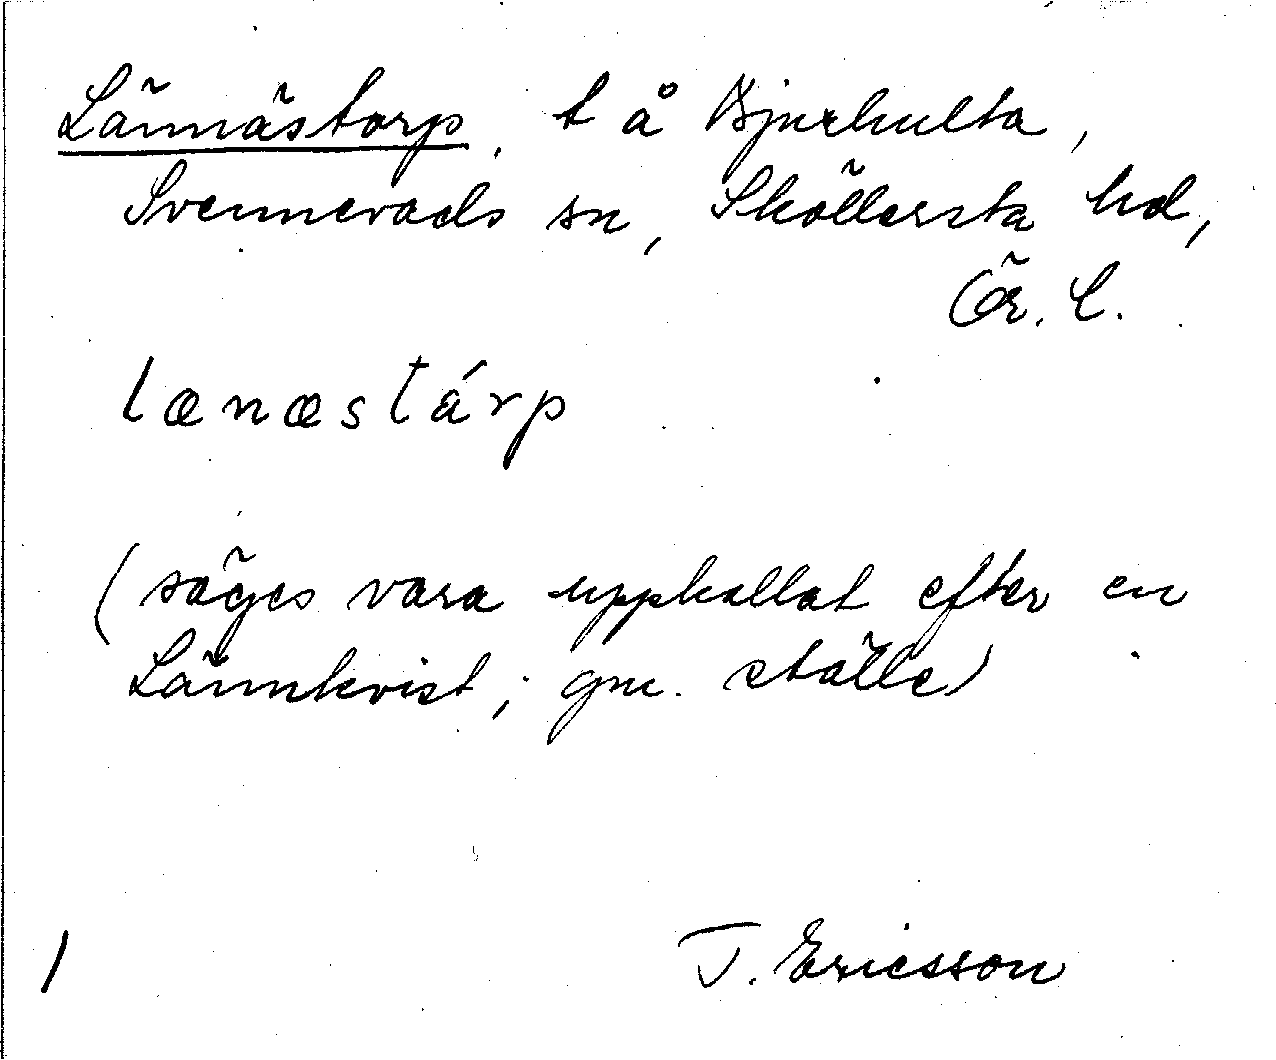 Lännästorp, t å Bjurhulta,
Svennevads sn, Sköllersta hd,
Ör. l.
lænæstárp
(säges vara uppkallat efter en
Lännkvist; gm. ställe)
/
T. Ericsson